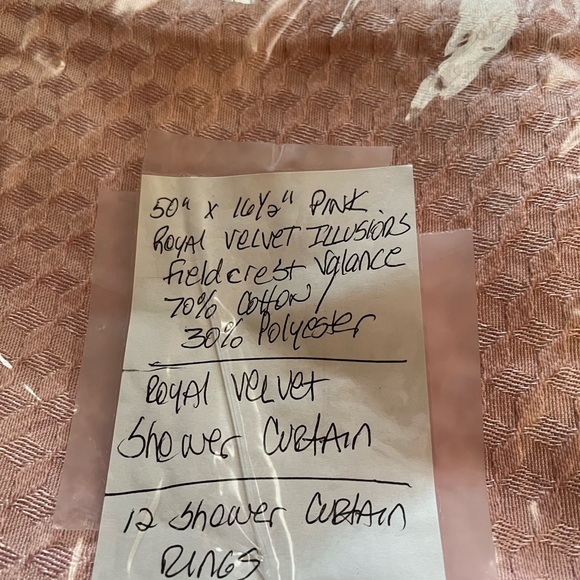 50" x 16½" PINK
ROYAL VELVET ILLUSIONS
Fieldcrest Valance
70% COTTON/
30% Polyester
ROYAL VELVET
Shower CURTAIN
12 Shower CURTAIN
RINGS